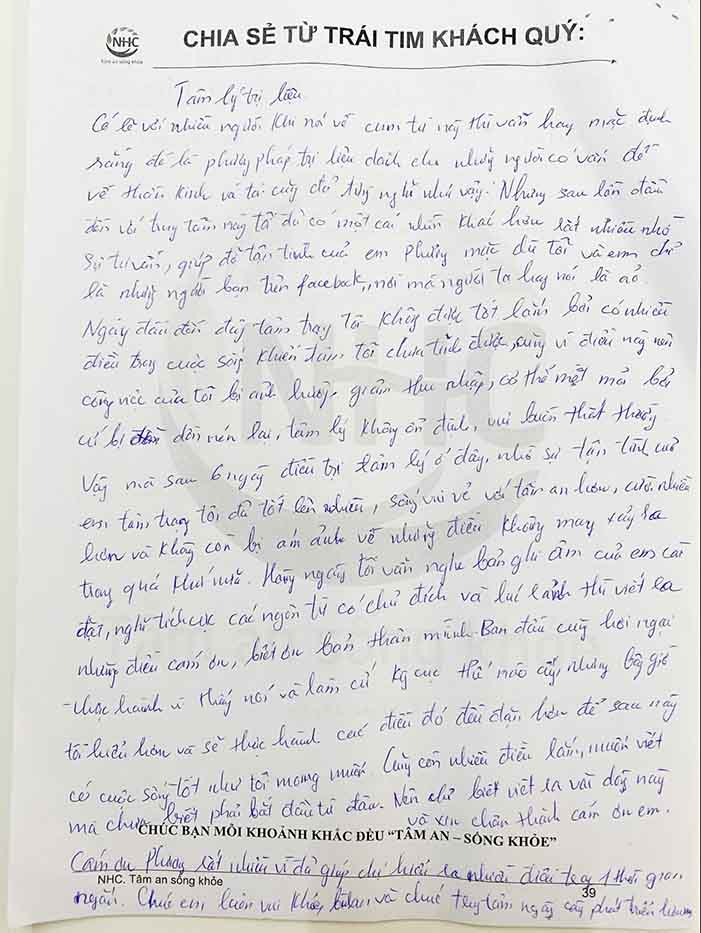 NHC
Tâm an sống khỏe
CHIA SẺ TỪ TRÁI TIM KHÁCH QUÝ:
Tâm lý trị liệu
Có lẽ với nhiều người khi nói về cụm từ này thì vẫn hay mặc định
rằng đó là phương pháp trị liệu dành cho những người có vấn đề
về thần kinh và tôi cũng đã từng nghĩ như vậy. Nhưng sau lần đầu
đến với trung tâm này tôi đã có một cái nhìn khác hơn rất nhiều nhờ
sự tư vấn, giúp đỡ tận tình của em Phương mặc dù tôi và em chỉ
là những người bạn trên facebook, nơi mà người ta hay nói là ảo.
Ngày đầu đến đây tâm trạng tôi không được tốt lắm bởi có nhiều
điều trong cuộc sống khiến tâm tôi chưa tĩnh được, cũng vì điều này nên
công việc của tôi bị ảnh hưởng, giảm thu nhập, cơ thể mệt mỏi bởi
cứ bị dồn nén lại, tâm lý không ổn định, vui buồn thất thường.
Vậy mà sau 6 ngày điều trị tâm lý ở đây, nhờ sự tận tình của
em tâm trạng tôi đã tốt lên nhiều, sống vui vẻ với tâm an hơn, cười nhiều
hơn và không còn bị ám ảnh về những điều không may xảy ra
trong quá khứ nữa. Hàng ngày tôi vẫn nghe bản ghi âm của em cài
đặt, nghĩ tích cực các ngôn từ có chủ đích và lúc rảnh thì viết ra
những điều cảm ơn, biết ơn bản thân mình. Ban đầu cũng hơi ngại
thực hành vì thấy nói và làm cứ kỳ cục thế nào ấy, nhưng bây giờ
tôi hiểu hơn và sẽ thực hành các điều đó đều đặn hơn để sau này
có cuộc sống tốt như tôi mong muốn. Cũng còn nhiều điều lắm, muốn viết
mà chưa biết phải bắt đầu từ đâu. Nên chỉ biết viết ra vài dòng này
và xin chân thành cảm ơn em.
CHÚC BẠN MỖI KHOẢNH KHẮC ĐỀU “TÂM AN – SỐNG KHỎE”
Cảm ơn Phương rất nhiều vì đã giúp chị hiểu ra nhiều điều trong 1 thời gian
NHC. Tâm an sống khỏe
39
ngắn. Chúc em luôn vui khỏe, và chúc trung tâm ngày càng phát triển